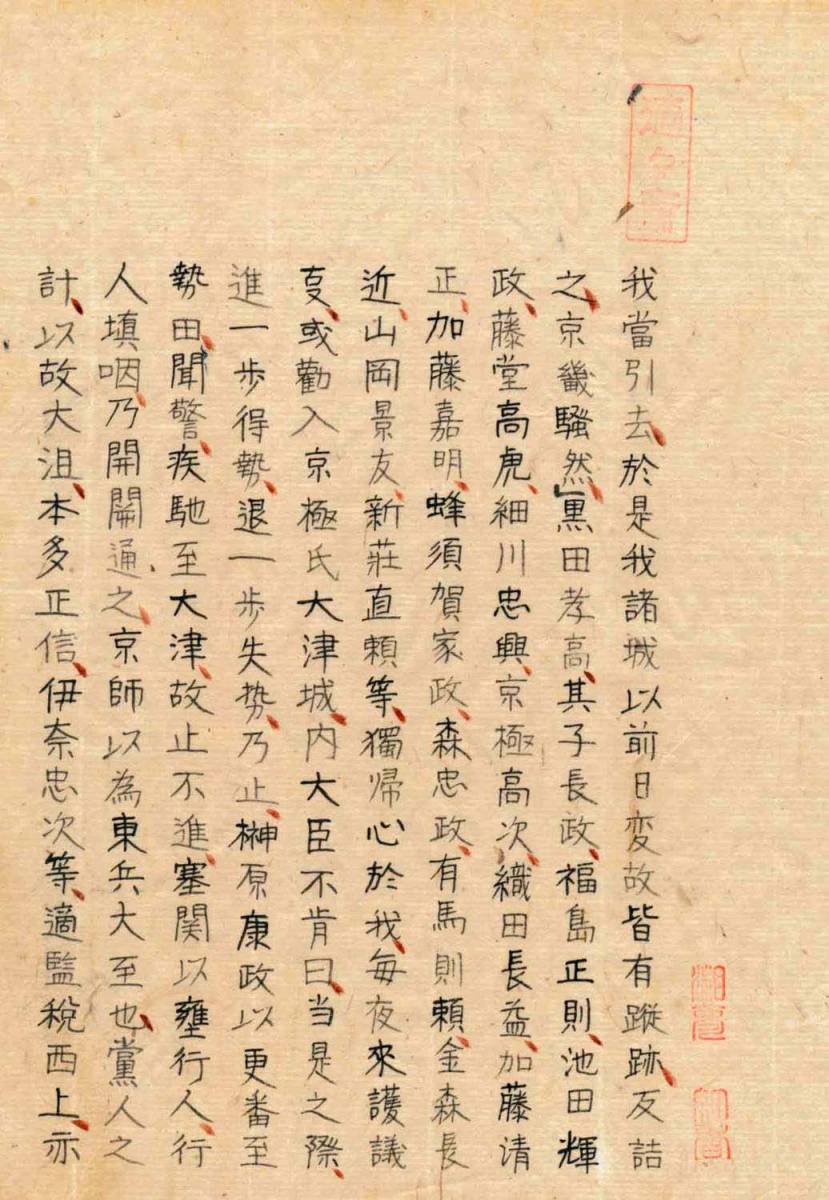 我當引去、於是我諸城以前日変故皆有蹤跡、反詰
之、京畿騒然」黒田孝高、其子長政、福島正則、池田輝
政、藤堂高虎、細川忠興、京極高次、織田長益、加藤清
正、加藤嘉明、蜂須賀家政、森忠政、有馬則頼、金森長
近、山岡景友、新莊直頼等、獨帰心於我、毎夜來護議
変、或勸入京極氏大津城、内大臣不肯曰、当是之際、
進一歩得勢、退一歩失势、乃止、榊原康政以更番至
勢田、聞警、疾馳至大津、故止不進、塞関以壅行人、行
人填咽、乃開關通之、京師以為東兵大至也、黨人之
計、以故大沮、本多正信、伊奈忠次等、適監税西上、亦